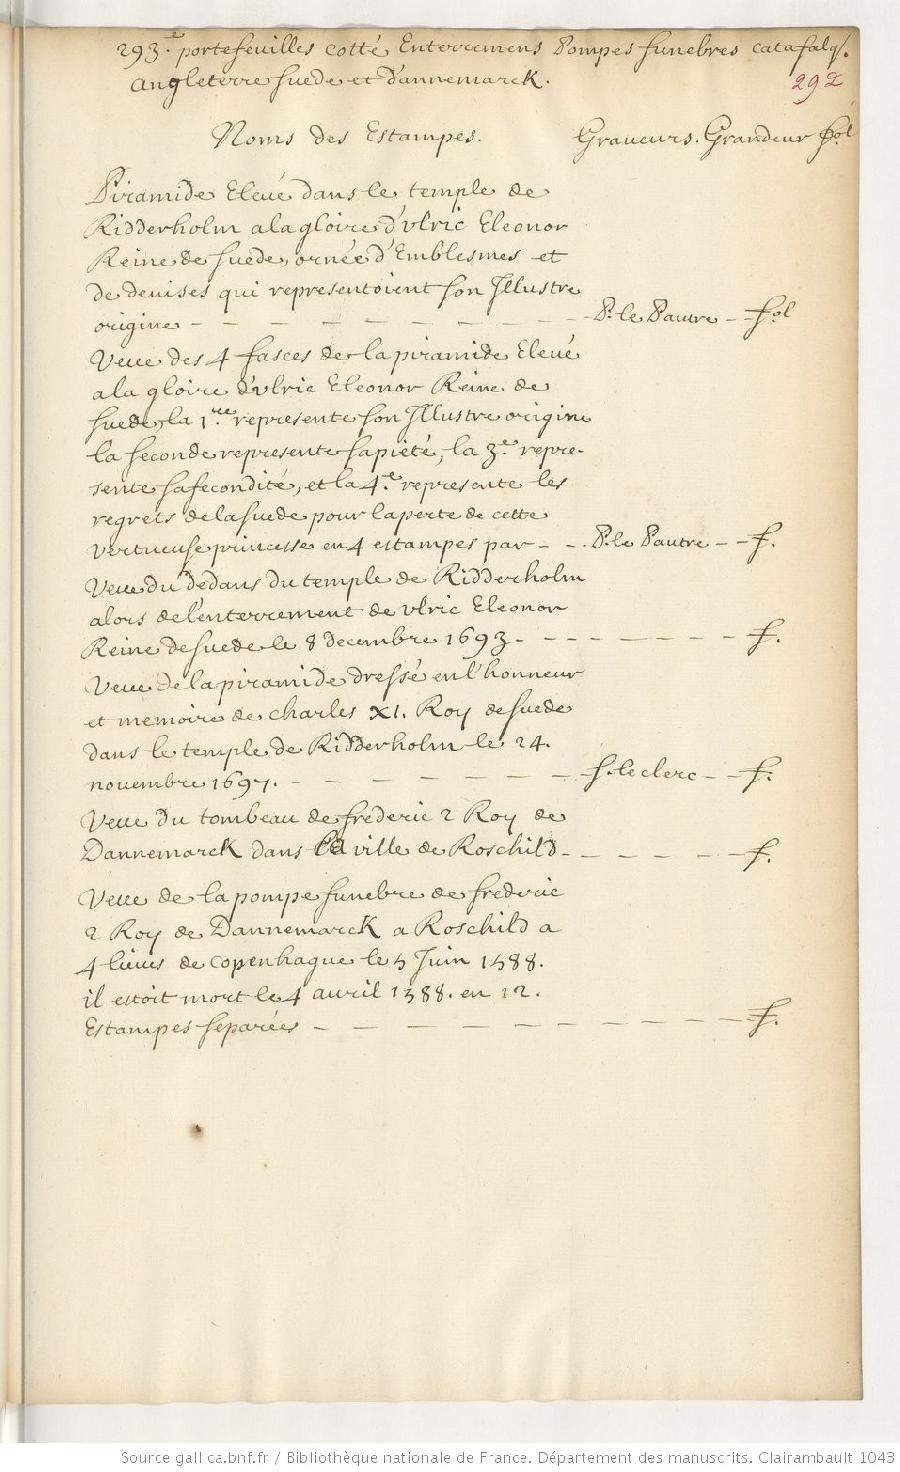 293.e portefeuilles cotté Enterremens Pompes funebres catafalq/.
angleterre suede et dannemarck.
292
Noms des Estampes. Graueurs. Grandeur fol
Piramide Eleué dans le temple de
Ridderholm a la gloire d'vlric Eleonor
Reine de suede, ornée d'Emblesmes et
de deuises qui representoient son Jllustre
origine - - - - - - - - - - P. le Pautre - - fol
Veue des 4 fasces de la piramide Eleué
a la gloire d'vlric Eleonor Reine de
suede, la 1.re represente son Jllustre origine
la seconde represente sa pieté, la 3.e repre-
sente sa fecondité, et la 4.e represente les
regrets de la suede pour la perte de cette
vertueuse princesse en 4 estampes par - - . P. le Pautre - - f.
Veue du dedans du temple de Ridderholm
alors de l'enterrement de vlric Eleonor
Reine de suede le 8 decembre 1693 - - - - - - - - f.
Veue de la piramide dressé en l'honneur
et memoire de charles XI. Roy de suede
dans le temple de Ridderholm le 24.
nouembre 1697. - - - - - - - S. le clerc - - f.
Veue du tombeau de frederic 2 Roy de
Dannemarck dans la ville de Roschild - - - - - - f.
Veue de la pompe funebre de frederic
2 Roy de Dannemarck a Roschild a
4 lieues de copenhague le 5 Juin 1588.
il estoit mort le 4 auril 1588. en 12.
Estampes separées - - - - - - - - - - - f.
Source gallica.bnf.fr / Bibliothèque nationale de France. Département des manuscrits. Clairambault 1043